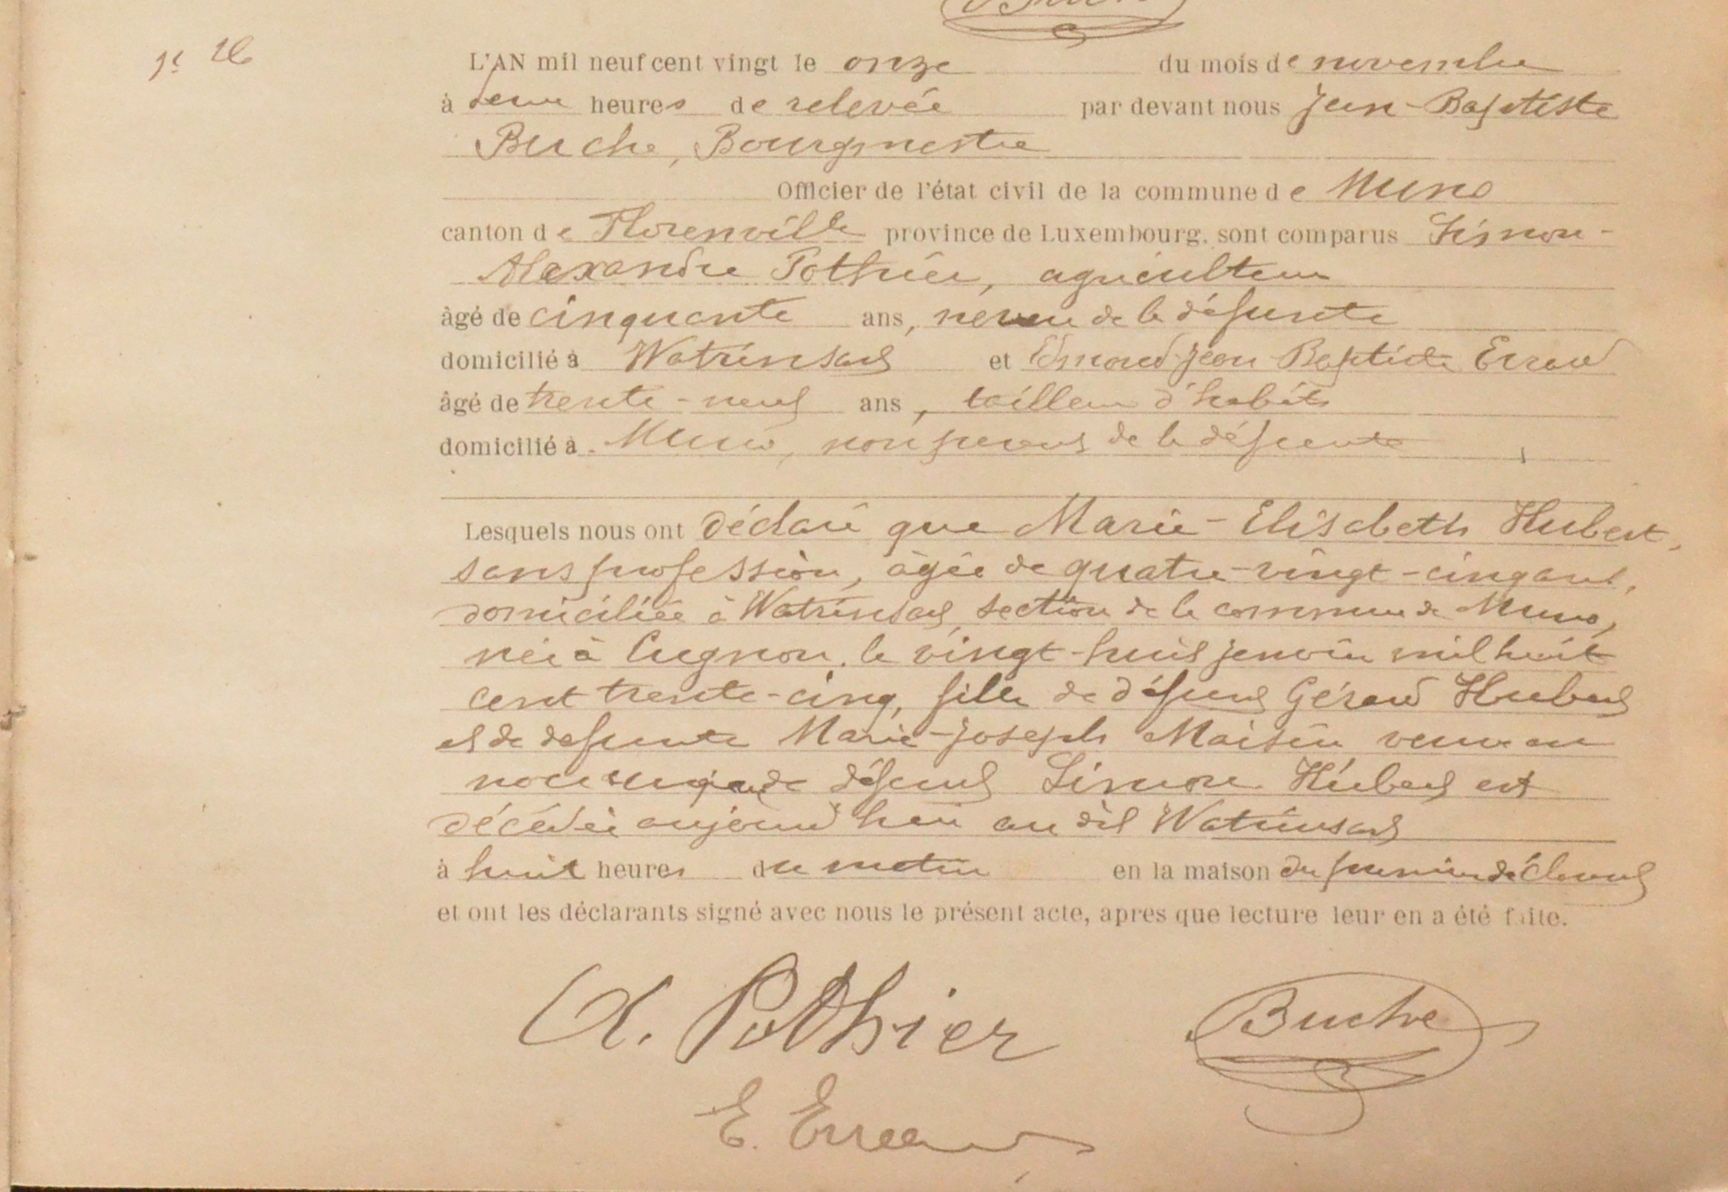 nº 26
L'AN mil neuf cent vingt le onze du mois de novembre
à deux heures de relevée par devant nous Jean-Baptiste
Buche, Bourgmestre
Officier de l'état civil de la commune de Muno
canton de Florenville province de Luxembourg. sont comparus Simon-
Alexandre Pothier, agriculteur
âgé de cinquante ans, neveu de la défunte
domicilié à Watrinsart et Edmond Jean Baptiste
âgé de trente-neuf ans, tailleur d'habits
domicilié à Muno, non parent de la défunte
Lesquels nous ont déclaré que Marie-Elisabeth Hubert,
sans profession, âgée de quatre-vingt-cinq ans,
domiciliée à Watrinsart, section de la commune de Muno,
née à Cugnon, le vingt-huit janvier mil huit
cent trente-cinq, fille de défunt Gérard Hubert
et de défunte Marie-Joseph veuve en
de défunt Simon Hubert est
décédée aujourd'hui au dit Watrinsart
à huit heures du matin en la maison du premier déclarant
et ont les déclarants signé avec nous le présent acte, apres que lecture leur en a été faite.
A. Pothier
Buche
E.